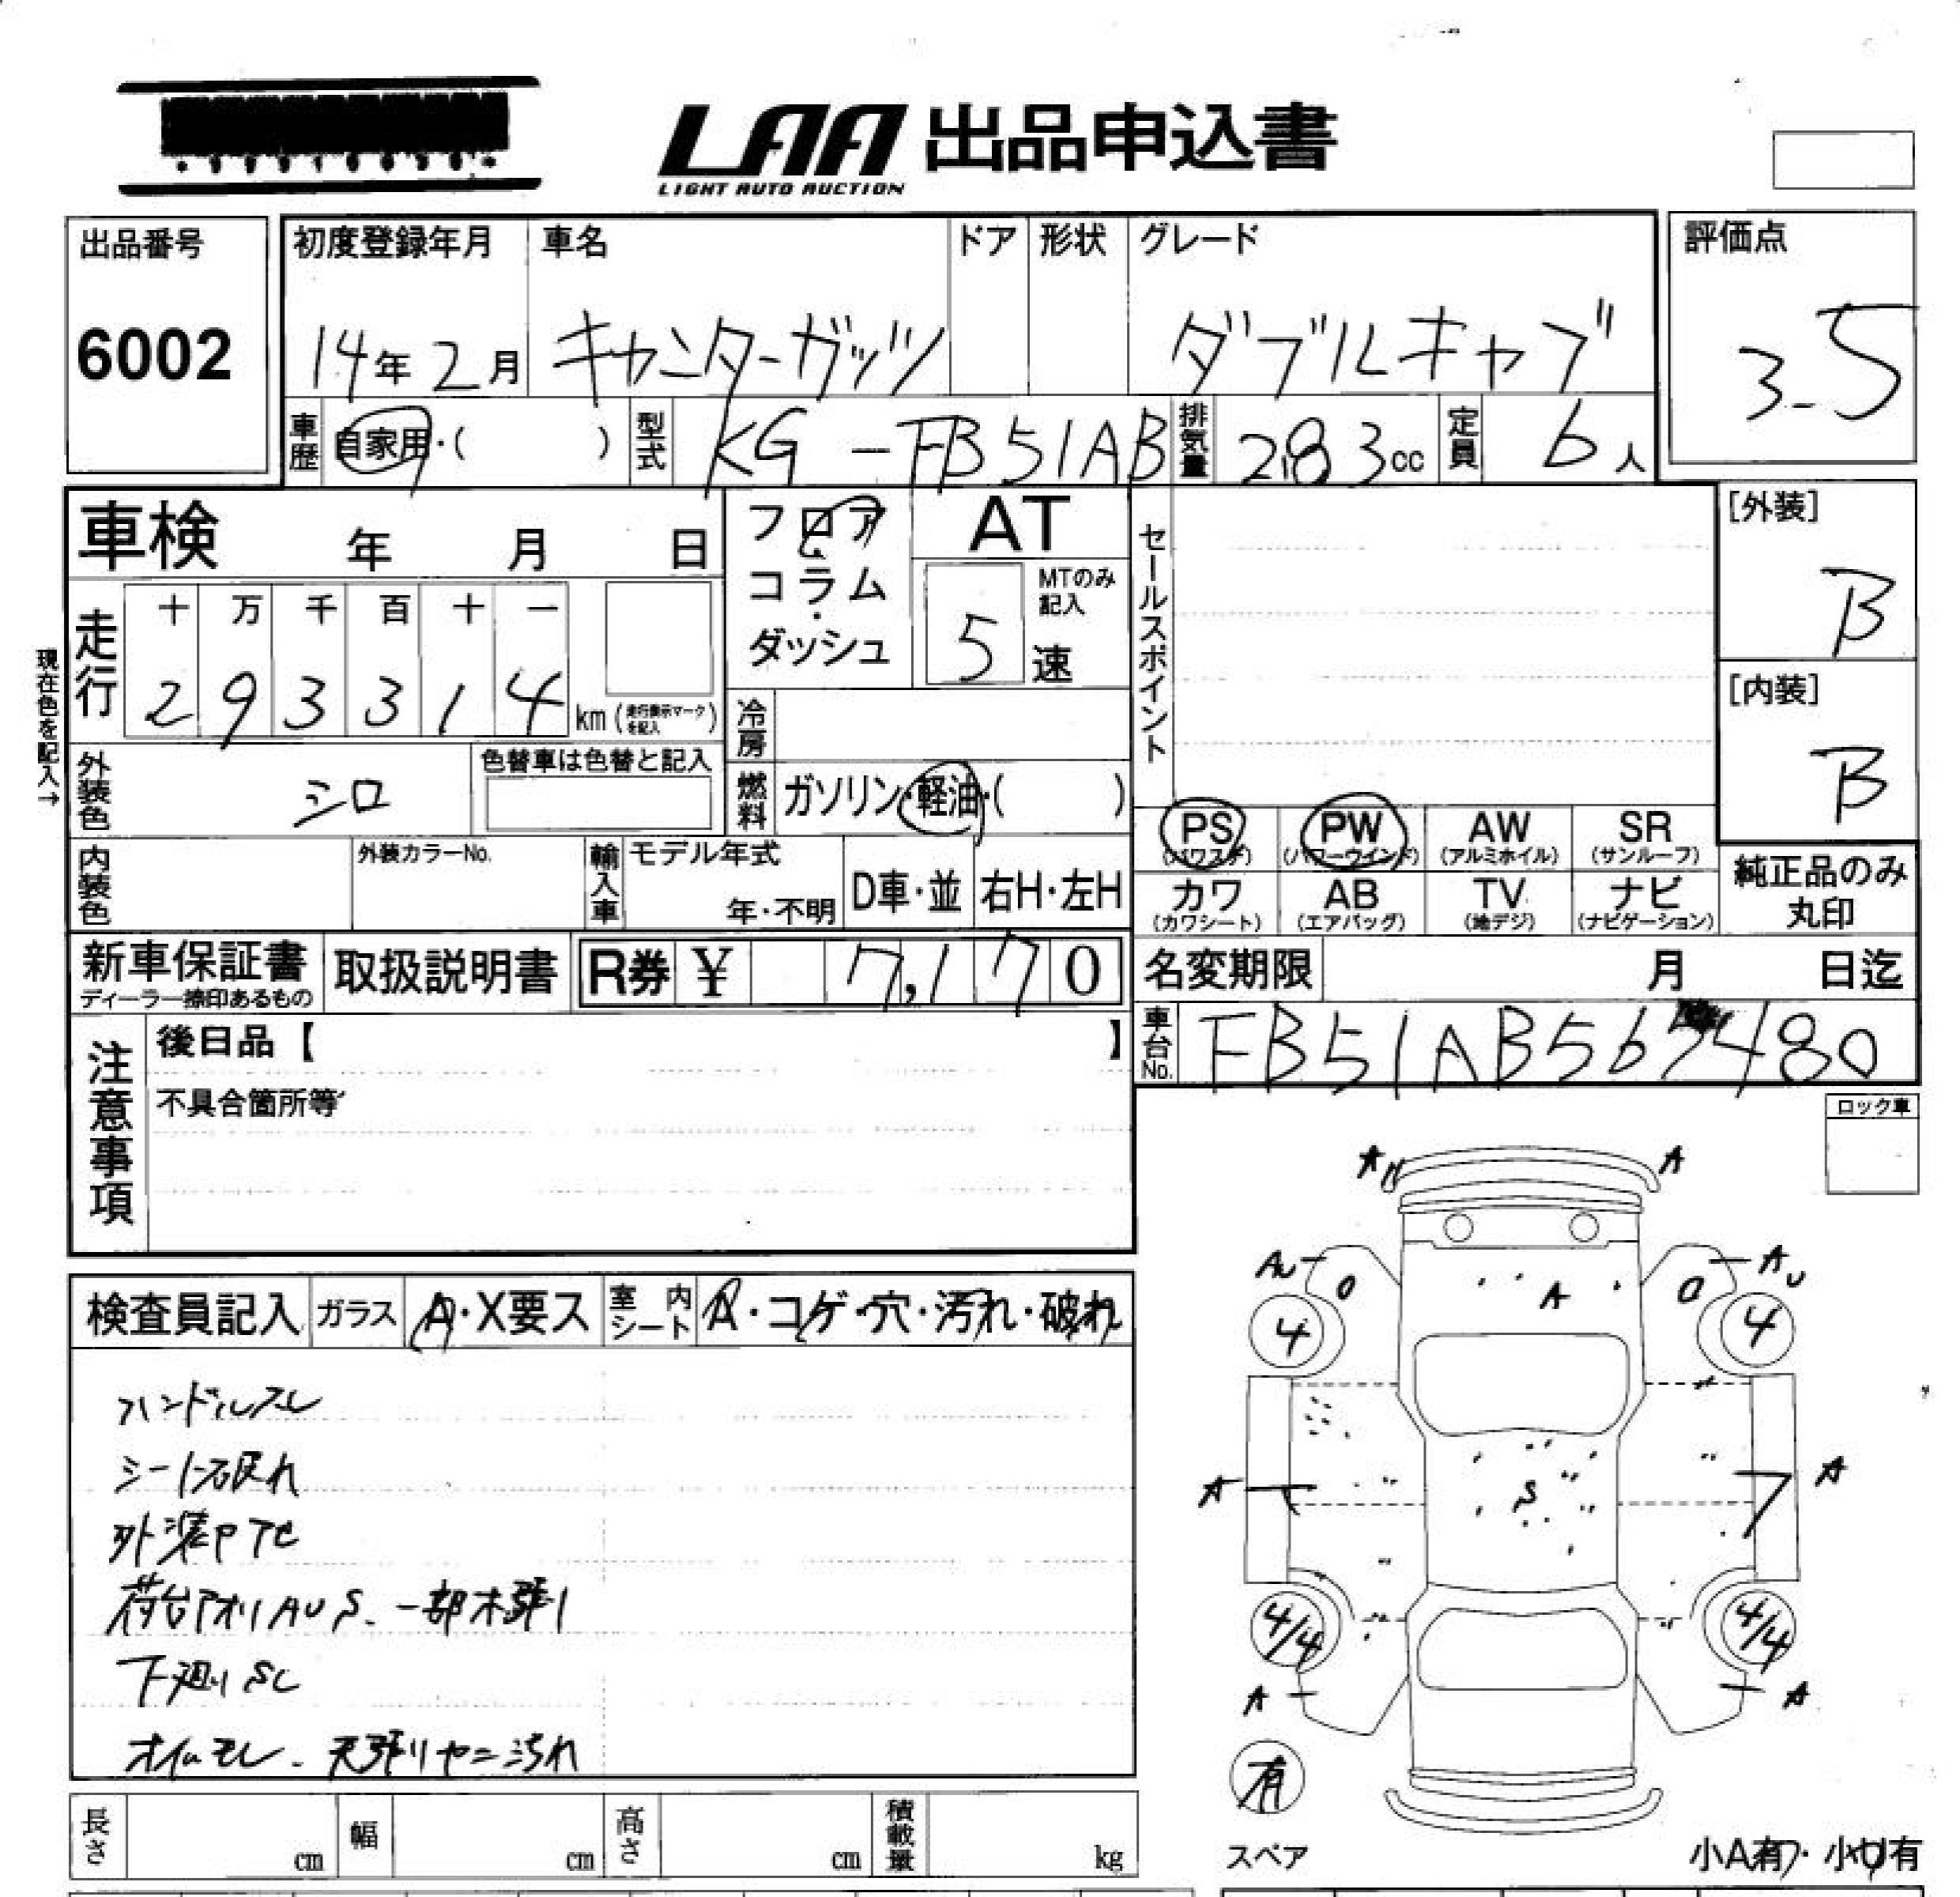 LAA 出品申込書
LIGHT AUTO AUCTION
出品番号
6002
初度登録年月
14年 2月
車名
キャンターガッツ
ドア
形状
グレード
ダブルキャブ
評価点
3.5
車歴
自家用・( )
型式
KG-FB51AB
排気量
283cc
定員
6人
車検 年 月 日
フロア・コラム・ダッシュ
AT
MTのみ記入
5速
セールスポイント
[外装]
B
[内装]
B
現在色を記入→
走行
十 万 千 百 十 一
2 9 3 3 1 4 km
(走行表示マークを記入)
冷房
外装色
シロ
色替車は色替と記入
燃料
ガソリン・軽油・( )
内装色
外装カラーNo.
輸入車
モデル年式
年・不明
D車・並
右H・左H
PS
(パワステ)
PW
(パワーウインド)
AW
(アルミホイル)
SR
(サンルーフ)
カワ
(カワシート)
AB
(エアバッグ)
TV
(地デジ)
ナビ
(ナビゲーション)
純正品のみ
丸印
新車保証書
ディーラー捺印あるもの
取扱説明書
R券 ¥ 7,170
名変期限 月 日迄
車台No.
注意事項
後日品【 】
不具合箇所等
ロック車
検査員記入
ガラス
A・X要ス
室内シート
A・コゲ・穴・汚れ・破れ
ハンドルスレ
シート破れ
外装PTC
荷台アオリAUS. 一部木張り
下廻りSC
オイルモレ. 天張りヤニ汚れ
A A
AU AU
4 4
A
S
A A
4/4 4/4
A A
有
スペア
小A有・小U有
長さ cm
幅 cm
高さ cm
積載量 kg